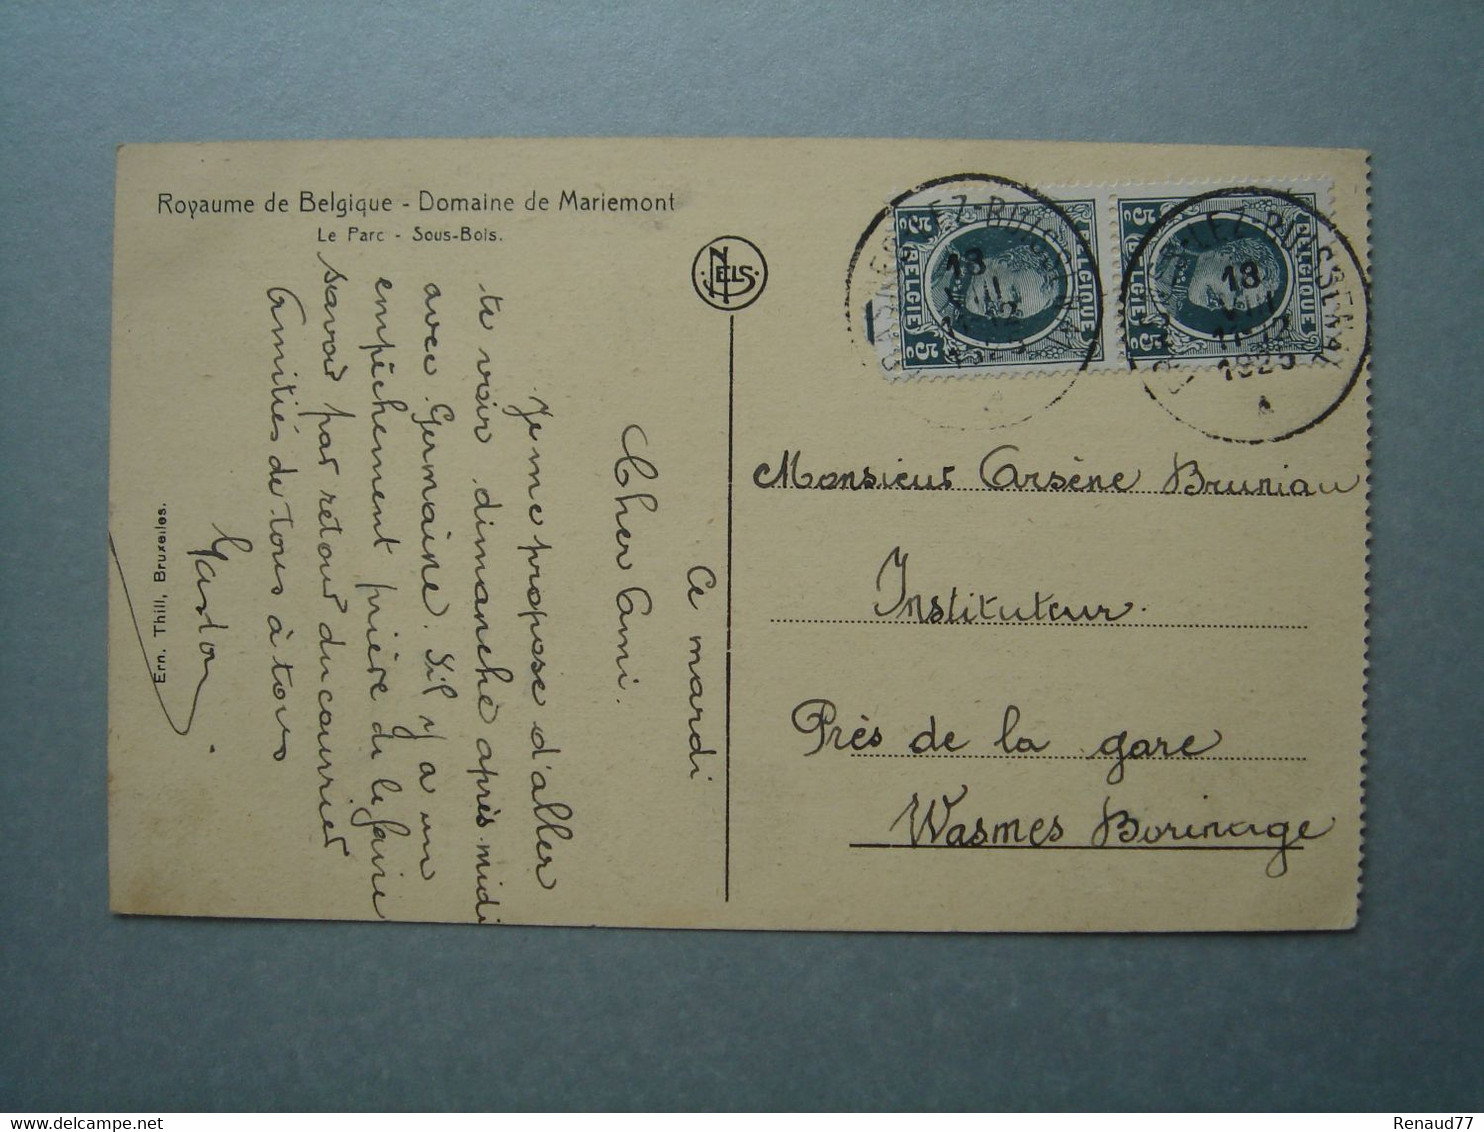 Royaume de Belgique - Domaine de Mariemont
Le Parc - Sous-Bois.
NELS
Ce mardi
Cher Ami.
Je me propose d'aller
te voir dimanche après-midi
avec Germaine. S'il y a un
empêchement prière de le faire
savoir par retour du courrier
Amitiés de tous à tous
Gaston.
Ern. Thill, Bruxelles.
5c 5c
BELGIE BELGIQUE
5c 5c
BELGIQUE
18
VIII
11-12
1925
18
VIII
11-12
1925
A
Monsieur Arsène Bruniau
Instituteur.
Près de la gare
Wasmes Borinage
Renaud77
delcampe.net